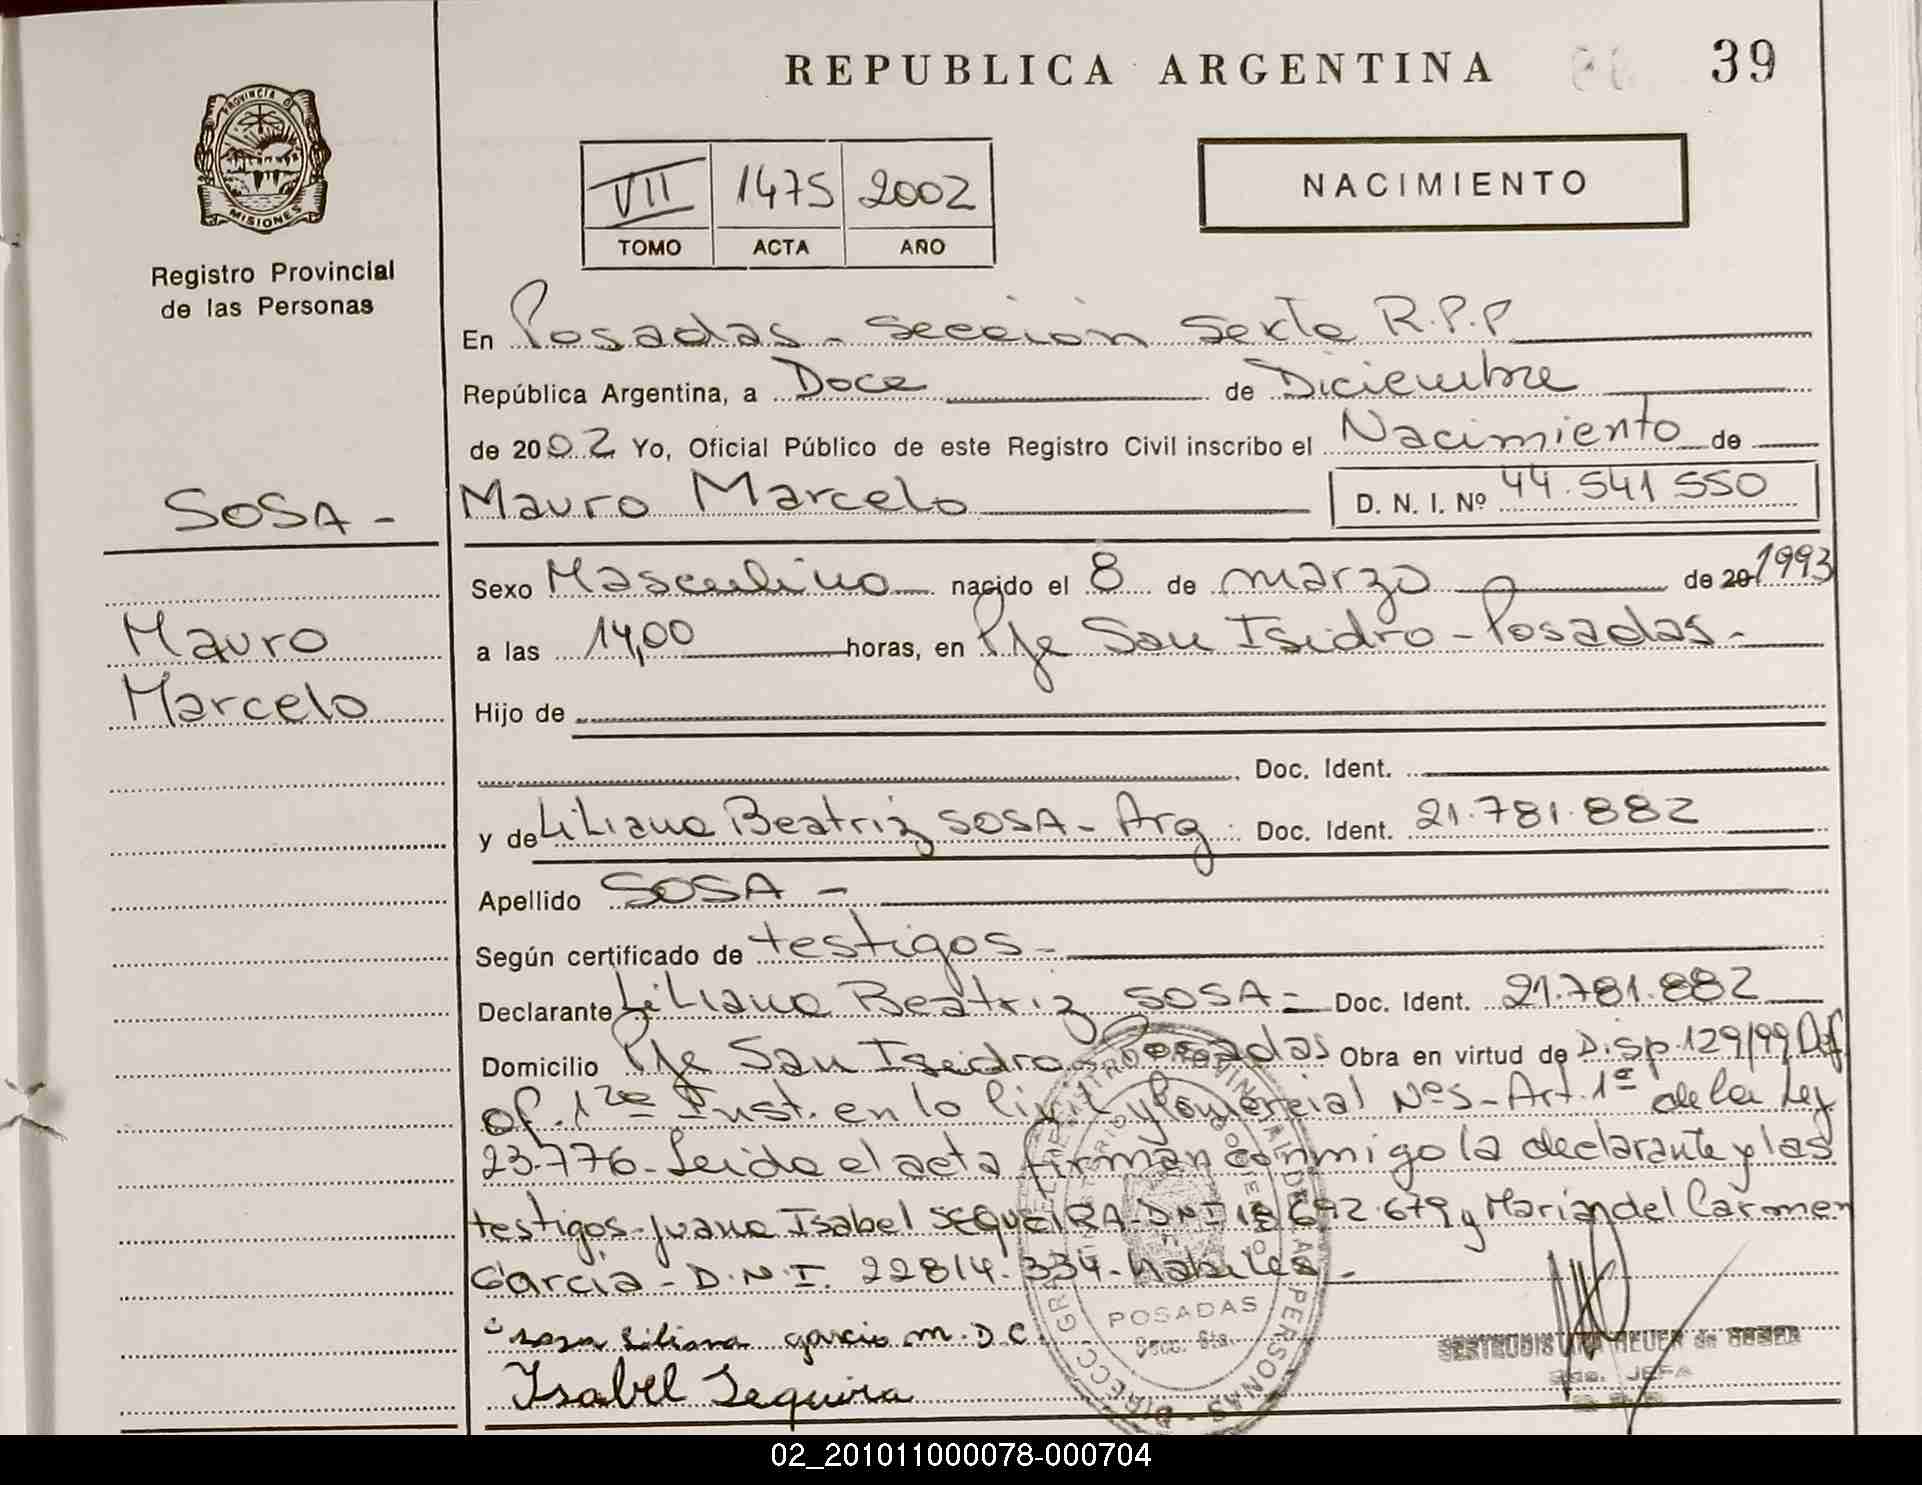 REPUBLICA ARGENTINA
39
PROVINCIA D
MISIONES
Registro Provincial
de las Personas
VII 1475 2002
TOMO ACTA AÑO
NACIMIENTO
En Posadas - Sección Sexta R.P.P
República Argentina, a Doce de Diciembre
de 2002 Yo, Oficial Público de este Registro Civil inscribo el Nacimiento de
SOSA - Mauro Marcelo D. N. I. Nº 44.541 550
Sexo Masculino nacido el 8 de marzo de 20 1993
Mauro
a las 14,00 horas, en Pje San Isidro - Posadas -
Marcelo
Hijo de
Doc. Ident.
y de Liliana Beatriz SOSA - Arg. Doc. Ident. 21.781.882
Apellido SOSA -
Según certificado de testigos -
Declarante Liliana Beatriz SOSA = Doc. Ident. 21.781.882
Domicilio Pje San Isidro Posadas Obra en virtud de Disp. 129/99 Def.
of. 1ra Inst. en lo Civil y Comercial Nº5 - Art. 1º de la Ley
23.776 - Leida el acta firman conmigo la declarante y las
testigos - Juana Isabel SEQUEIRA - DNI 18 692.679 y María del Carmen
García - D.N.I. 22814.334 - habiles -
sosa Liliana garcia m. D C.
Isabel Sequeira
POSADAS
Secc. 6ta.
JEFA
02_201011000078-000704